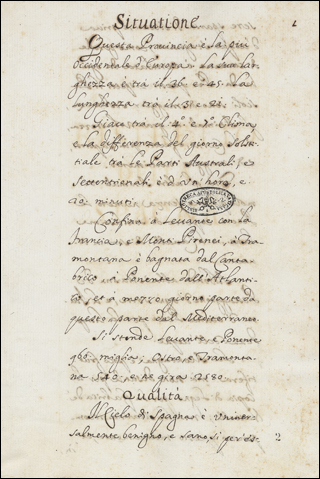 Situatione
1
Questa Provincia è la più
Occidentale d'Europa. La sua lar-
ghezza è trà il 36 e 45. La
lunghezza trà il 3 e 21.
Giace trà il 4º e 7º Clima
e la differenza del giorno Solsti-
tiale tra le Parti Australi, e
Settentrionali è d'un hora, e
20 minuti.
Confina à Levante con la
Francia, e Monti Pirenei, à Tra-
montana è bagnata dal Canta-
brico à Ponente dall'Atlanti-
co, et à mezzo giorno parte da
questo parte dal Mediterraneo.
Si stende Levante, e Ponente
miglia, Ostro, e Tramonta-
na 540, e te gira 2580.
Qualità
Il Cielo di Spagna è univer-
salmente benigno, e sano, si per es-
2